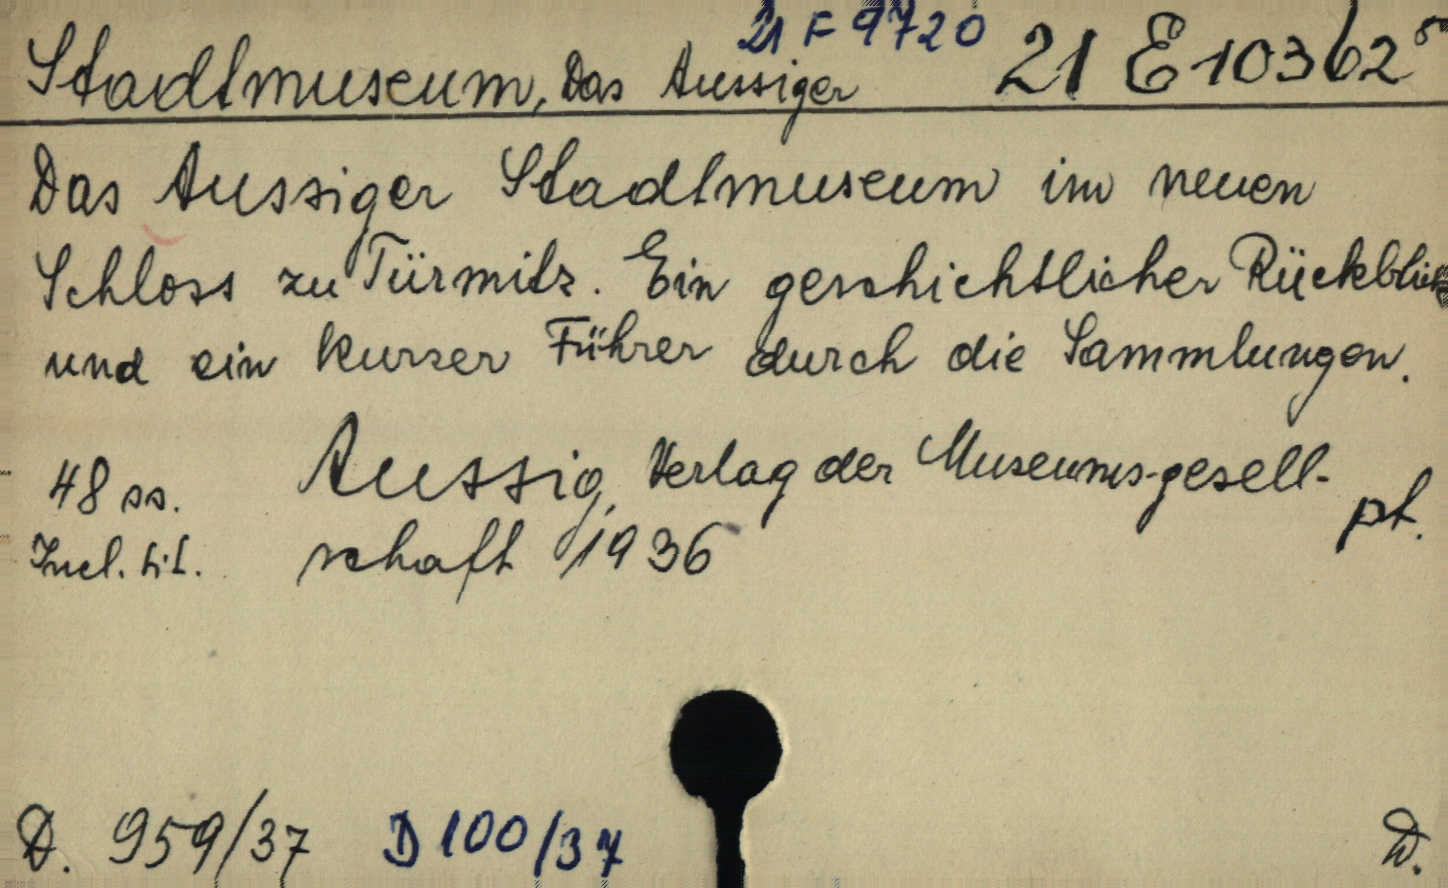 21 F 9720
Stadtmuseum, Das Aussiger 21 E 10362
Das Aussiger Stadtmuseum im neuen
Schloss zu Türmitz. Ein geschichtlicher Rückblick
und ein kurzer Führer durch die Sammlungen.
48 ss. Aussig, Verlag der Museums-gesell-
schaft 1936 pt.
Incl. tit.
D. 959/37 D 100/37 D.